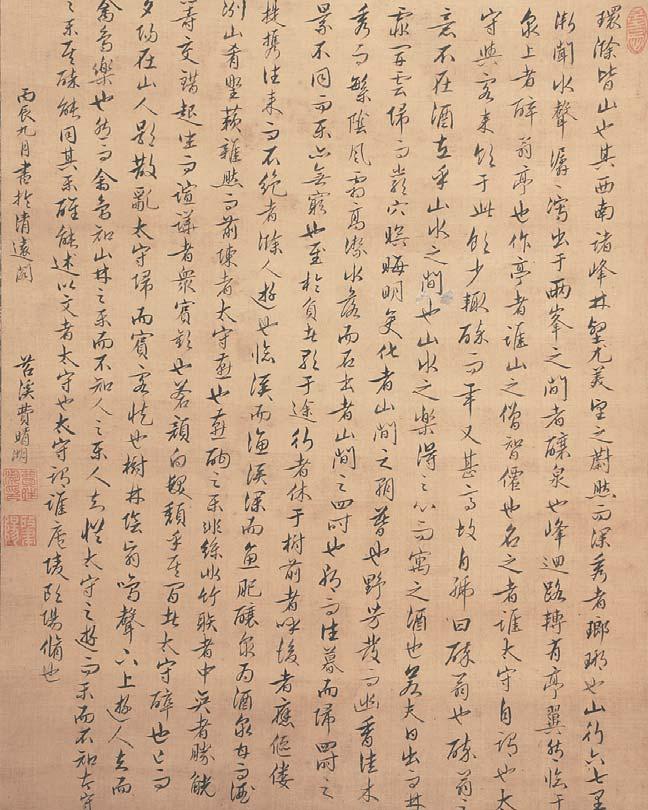 環滁皆山也其西南諸峰林壑尤美望之蔚然而深秀者瑯琊也山行六七里
漸聞水聲潺潺瀉出于兩峯之間者釀泉也峰迴路轉有亭翼然臨于
泉上者醉翁亭也作亭者誰山之僧智僊也名之者誰太守自謂也太
守與客来飲于此飲少輒醉而年又甚高故自號曰醉翁也醉翁之
意不在酒在乎山水之間也山水之樂得之心而寓之酒也若夫日出而林
霏開雲歸而巖穴暝晦明變化者山間之朝暮也野芳發而幽香佳木
秀而繁陰風霜高潔水落而石出者山間之四時也朝而往暮而歸四時之
景不同而樂亦無窮也至於負者歌于途行者休于樹前者呼後者應傴僂
提攜往来而不絕者滁人遊也臨溪而漁溪深而魚肥釀泉為酒泉香而酒
冽山肴野蔌雜然而前陳者太守宴也宴酣之樂非絲非竹射者中奕者勝觥
籌交錯起坐而諠譁者衆賓歡也蒼顏白髮頹乎其間者太守醉也已而
夕陽在山人影散亂太守歸而賓客從也樹林陰翳鳴聲下上遊人去而
禽鳥樂也然而禽鳥知山林之樂而不知人之樂人知從太守之遊而樂而不知太守
之樂其樂醉能同其樂醒能述以文者太守也太守謂誰廬陵歐陽脩也
丙辰九月書於清遠閣 苕溪費晴湖